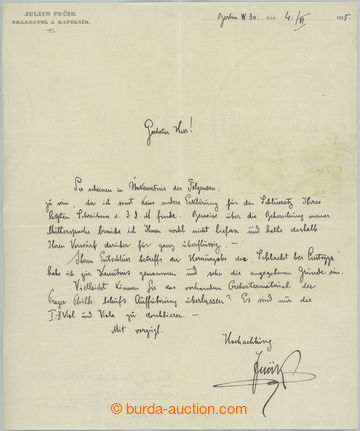 JULIUS FUČÍK
SKLADATEL A KAPELNÍK
Berlin W 30. dne 4./VI 1915.
Geehrter Herr!
Sie scheinen in Unkenntnis des Folgenden
zu sein, da ich sonst keine andere Erklärung für den Schlußsatz Ihres
letzten Schreibens v. 3. d. M. finde. Beweise über die Beherrschung meiner
Muttersprache brauche ich Ihnen wohl nicht liefern und halte deshalb
Ihren Vorwurf darüber für ganz überflüssig. –
Ihren Entschluss betreffs der Herausgabe der "Schlacht bei Custozza"
habe ich zur Kenntnis genommen und sehe die angegebenen Gründe ein.
Vielleicht können Sie das vorhandene Orchestermaterial der
behufs Aufführung überlassen? Es sind nur die
I. II Viol und Viola zu doublieren –
Mit vorzügl.
Hochachtung
Fučík
burda-auction.com